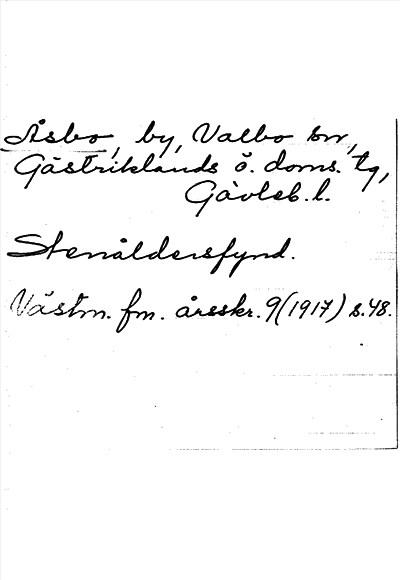 Åsbo, by, Valbo sn,
Gästriklands ö. doms. tg,
Gävleb. l.
Stenåldersfynd.
Västm. fm. årsskr. 9 (1917) s. 48.